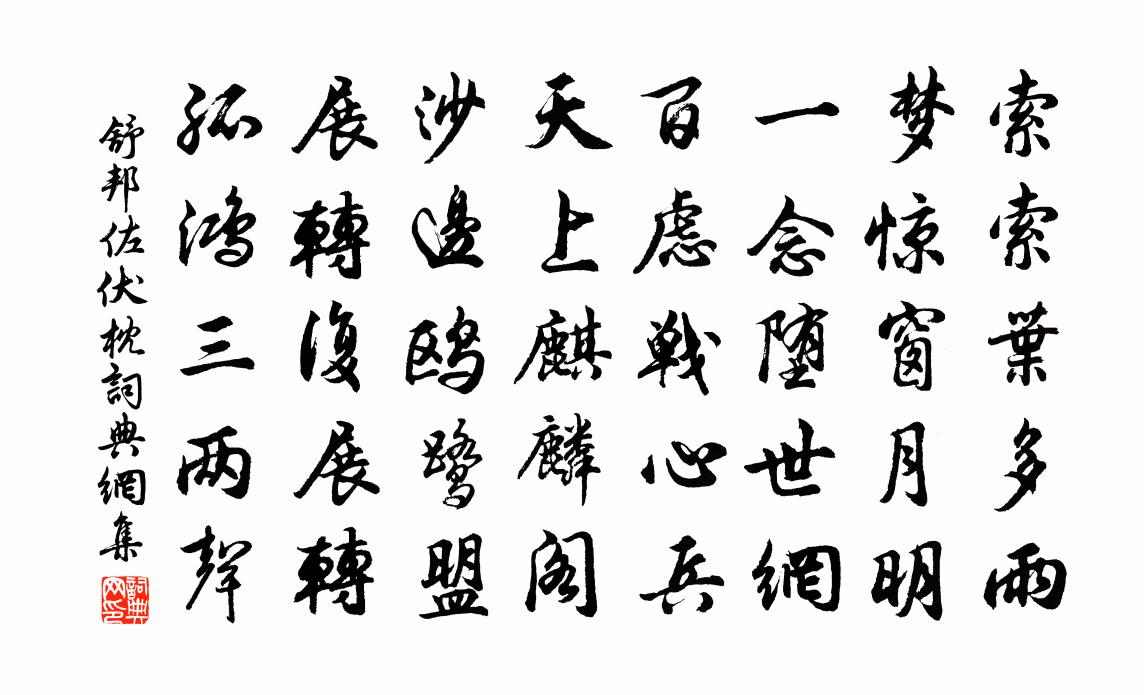 索索葉多雨
梦惊窗月明
一念堕世網
百慮戦心兵
天上麒麟阁
沙邊鸥鹭盟
展轉復展轉
孤鸿三两聲
舒邦佐伏枕詞典網集
詞典网印